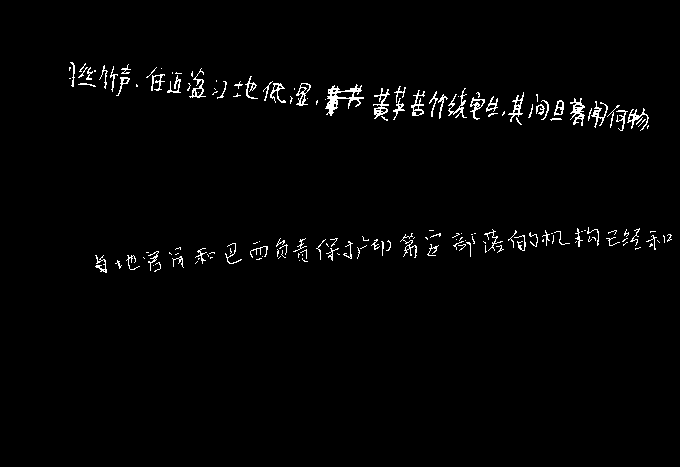 丝竹声.住近湓江地低湿,黄芦苦竹绕宅生.其间旦暮闻何物.
当地官房和巴西负责保护印第安部落的机构已经和